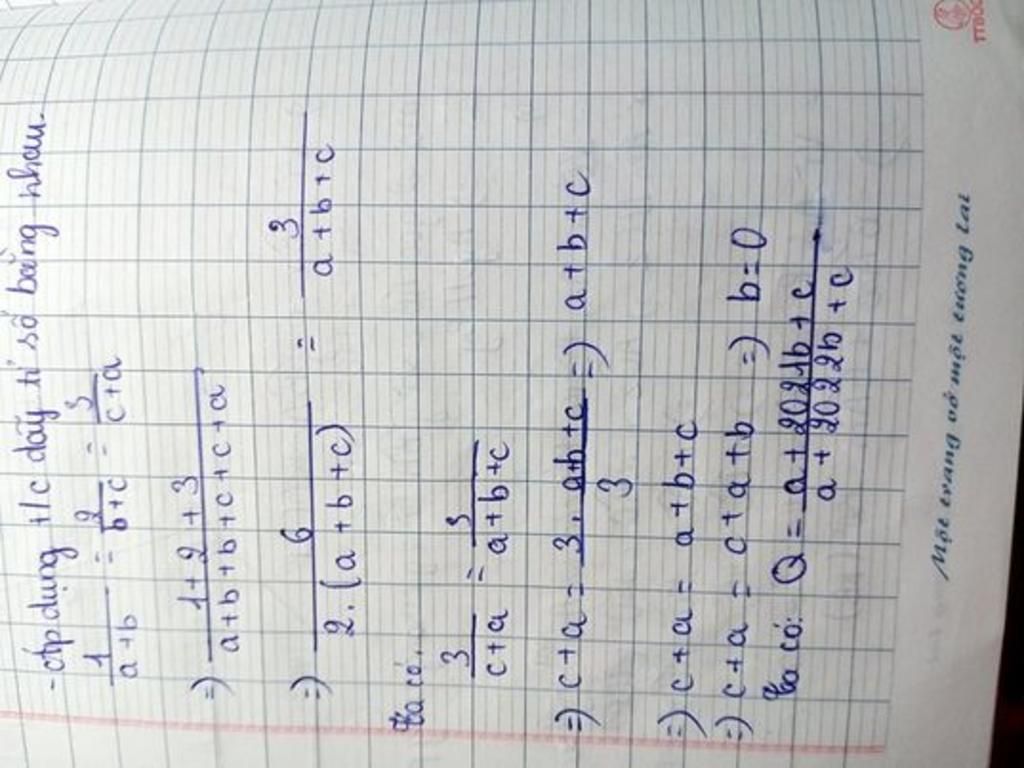 - áp dụng t/c dãy tỉ số bằng nhau.
1/(a+b) = 2/(b+c) = 3/(c+a)
=) (1+2+3)/(a+b+b+c+c+a)
=) 6/(2.(a+b+c)) = 3/(a+b+c)
Ta có,
3/(c+a) = 3/(a+b+c)
=) c+a = 3. (a+b+c)/3 =) a+b+c
=) c+a = a+b+c
=) c+a = c+a+b =) b=0
Ta có: Q = (a+2021b+c)/(a+2022b+c)
Một trang vở một tương lai